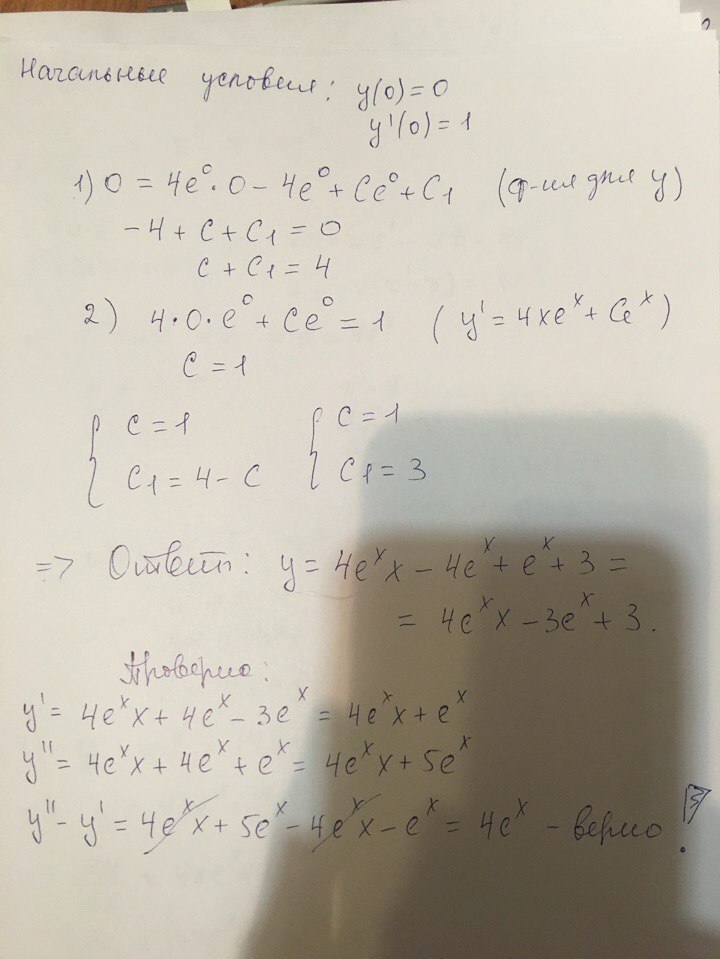 Начальные условия: y(0) = 0
y'(0) = 1
1) 0 = 4e⁰·0 - 4e⁰ + Ce⁰ + C₁ (ф-ия для y)
-4 + C + C₁ = 0
C + C₁ = 4
2) 4·0·e⁰ + Ce⁰ = 1 (y' = 4xeˣ + Ceˣ)
C = 1
{ C = 1 { C = 1
C₁ = 4 - C C₁ = 3
=> Ответ: y = 4eˣx - 4eˣ + eˣ + 3 =
= 4eˣx - 3eˣ + 3.
Проверио:
y' = 4eˣx + 4eˣ - 3eˣ = 4eˣx + eˣ
y'' = 4eˣx + 4eˣ + eˣ = 4eˣx + 5eˣ
y'' - y' = 4eˣx + 5eˣ - 4eˣx - eˣ = 4eˣ - верно!